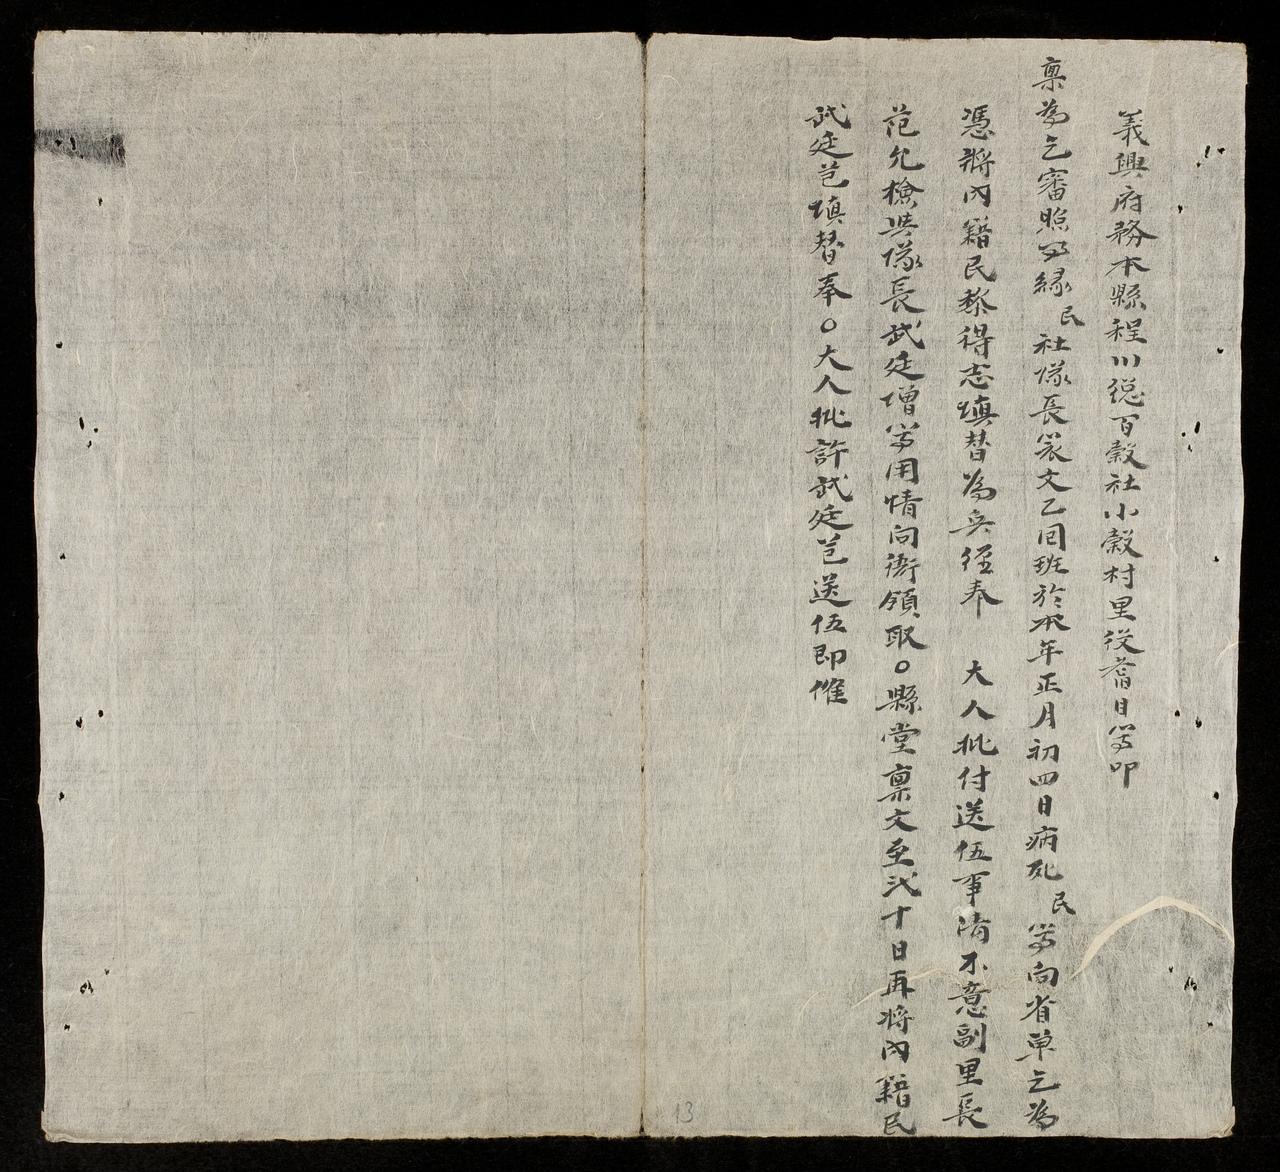 義興府務本縣程川總百穀社小穀村里役耆目等叩
稟為乞審照事緣民社隊長裴文乙囙班於本年正月初四日病死民等向省單乞為
憑將內籍民黎得志填替為兵經奉 大人批付送伍事清不意副里長
范允檢與隊長武廷僧等用情向衙領取○縣堂稟文至弍十日再將內籍民
武廷芑填替奉○大人批許武廷芑送伍即惟
13